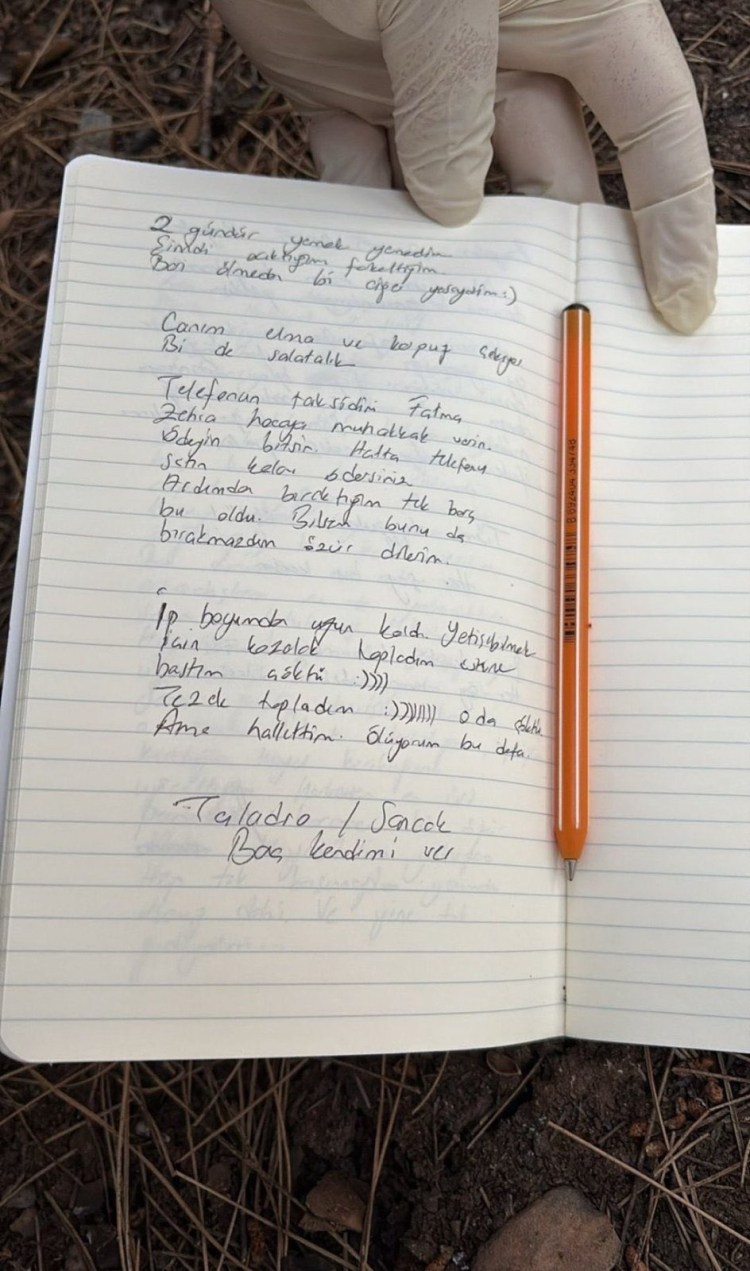 2 gündür yemek yemedim
Şimdi acıktığım farkettiğim.
Ben ölmeden bi ciğer yasıydım :)
Canım elma ve karpuz çekiyor
Bi de salatalık
Telefonun taksidini Fatma
Zehra hocaya muhakkak verin.
Ödeyin bitsin. Hatta telefonu
satın kelav edersiniz
Ardımda bıraktığım tek borç
bu oldu. Bilsem bunu da
bırakmazdım özür dilerim.
İp boyumdan uzun kaldı. Yetişebilmek
için kozalak topladım üstüne
bastım çöktü :))))
Tezek topladım :))))))) o da çöktü
Ama hallettim. Ölüyorum bu defa.
Taladro / Sancak
Baş kendimi ver
8 692404 334748